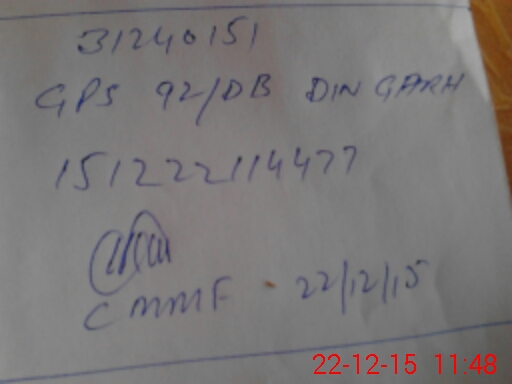 31240151
GPS 92/DB DIN GARH
151222114477
CMMF - 22/12/15
22-12-15 11:48